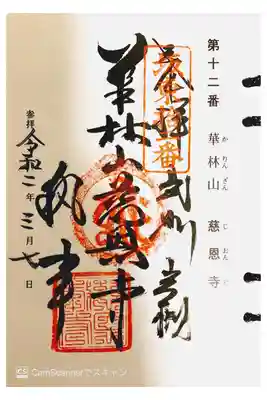 第十二番 華林山 慈恩寺
かりんざん じおんじ
奉拝 武州 岩槻
華林山慈恩寺
執事
参拝 令和二年三月七日
CS CamScannerでスキャン